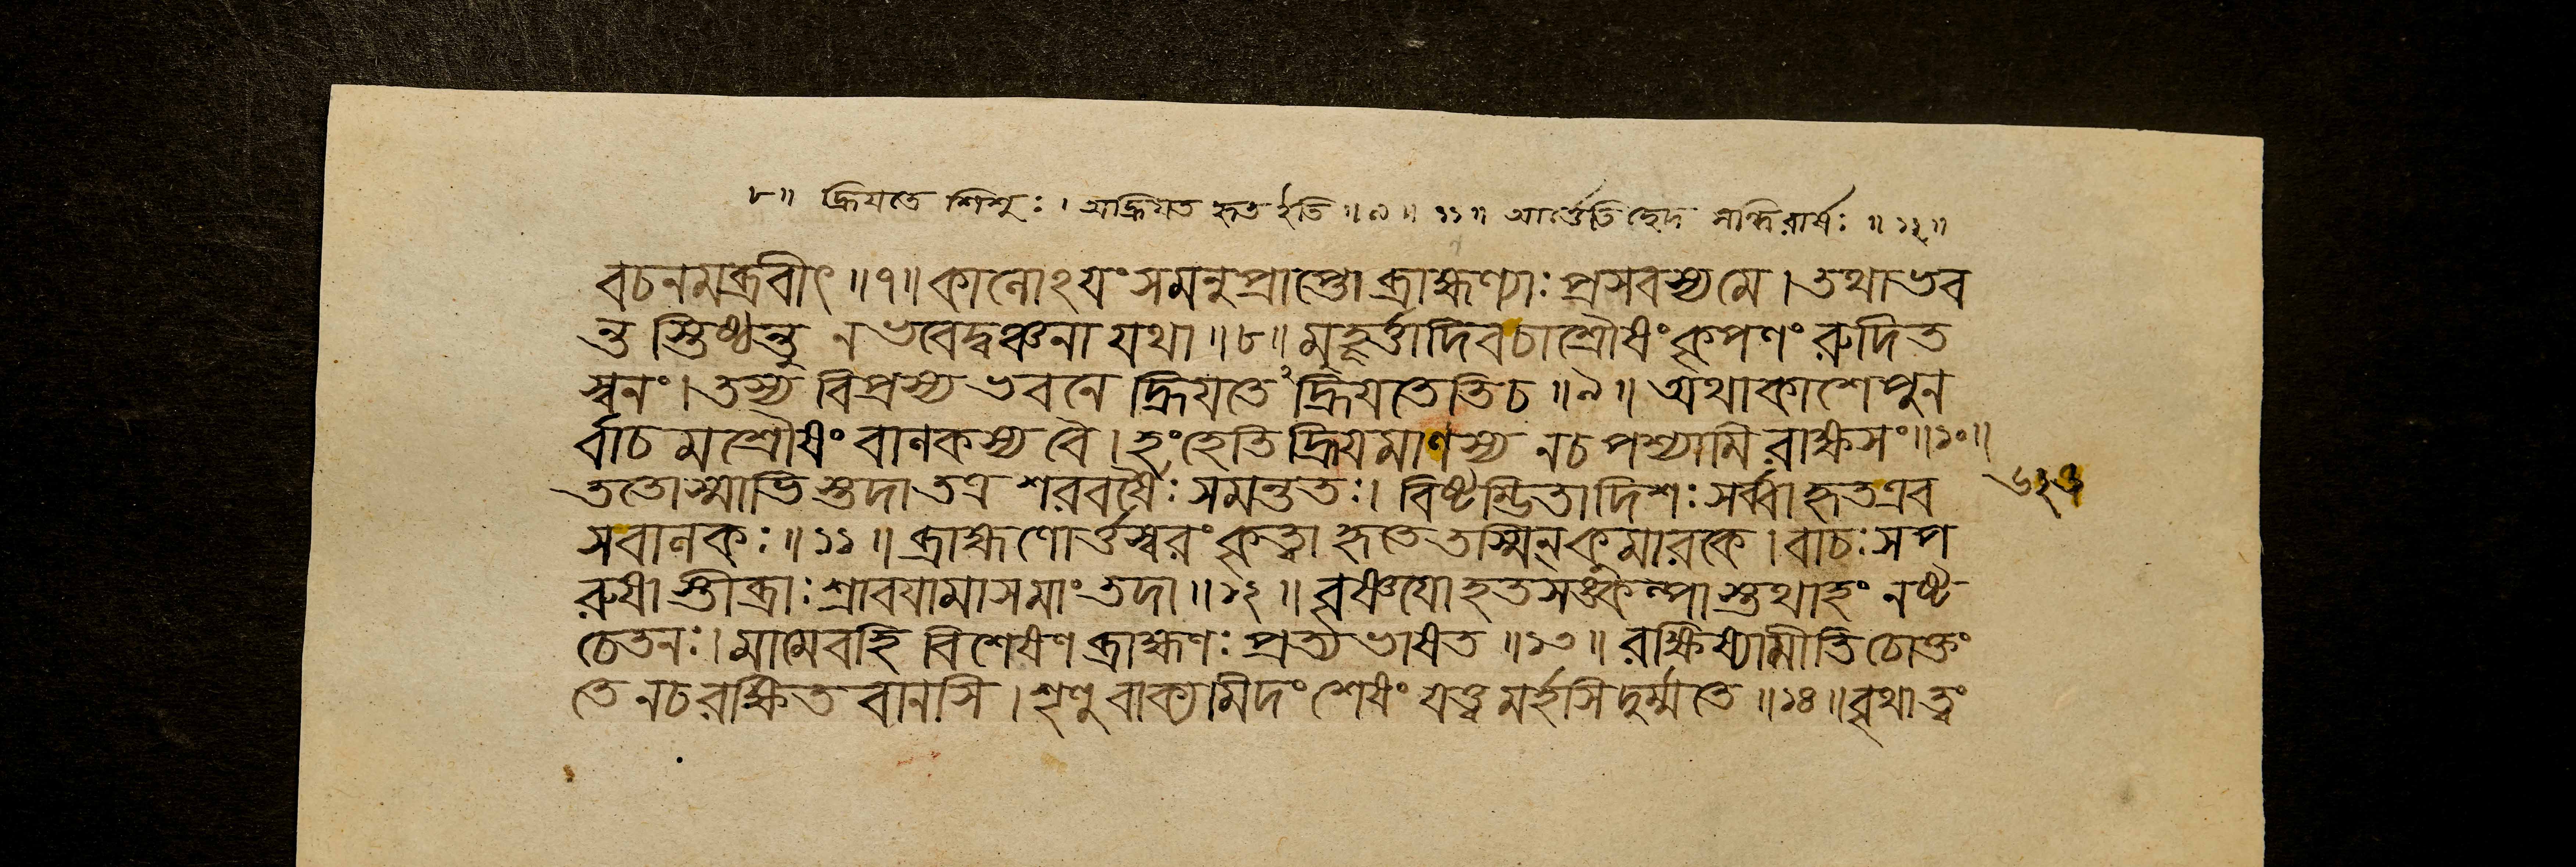 ৮॥ হ্রিযতে শিশুঃ। অহ্রিযত হৃত ইতি॥৯॥ ১১॥ আর্ত্তেতিছেদ সন্ধিরার্ষঃ॥১২॥
বচনমব্রবীৎ॥৭॥কালোঽযং সমনুপ্রাপ্তো ব্রাহ্মণ্যাঃ প্রসবস্যমে। তথাভব
ন্ত স্তিষ্ঠন্তু ন ভবেদ্বঞ্চনা যথা॥৮॥ মুহূর্ত্তাদিবচাশ্রৌষং কৃপণং রুদিত
স্বনং। তস্য বিপ্রস্য ভবনে হ্রিযতে২ হ্রিযতেতিচ॥৯॥ অথাকাশেপুন
র্বাচ মশ্রৌষং বালকস্য বৈ। হাংহেতি হ্রিযমাণস্য নচ পশ্যামি রাক্ষসং॥১০॥
ততোস্মাভি স্তদা তত্র শরবর্ষৈঃ সমন্ততঃ। বিষ্টম্ভিতাদিশঃ সর্ব্বা হৃতএব
সবালকঃ॥১১॥ ব্রাহ্মণোর্ত্তস্বরং কৃত্বা হৃতে তস্মিন্কুমারকে। বাচঃ সপ
রুষাস্তীব্রাঃ শ্রাবযামাসমাং তদা॥১২॥ বৃষ্ণযো হতসঙ্কল্পা স্তথাহং নষ্ট
চেতনঃ। মামেবহি বিশেষেণ ব্রাহ্মণঃ প্রত্যভাষত॥১৩॥ রক্ষিষ্যামীতিচোক্তং
তে নচ রক্ষিত বানসি। শৃণু বাক্যমিদং শেষং যত্ত্ব মর্হসি দুর্ম্মতে॥১৪॥ বৃথা ত্বং